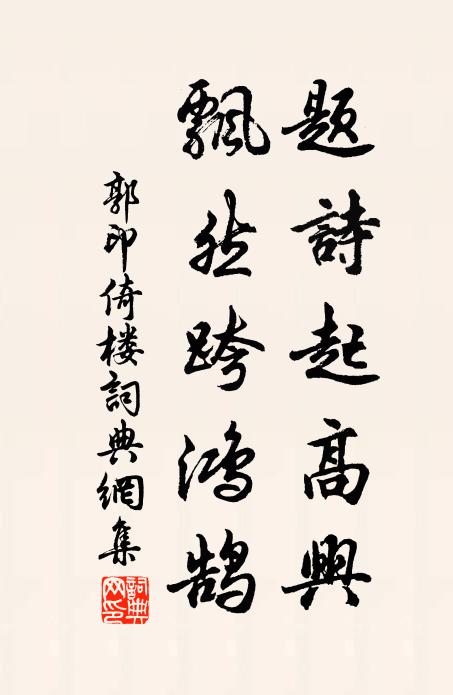 題詩起高興
飄然跨鴻鵠
郭印倚楼詞典網集
詞典网印